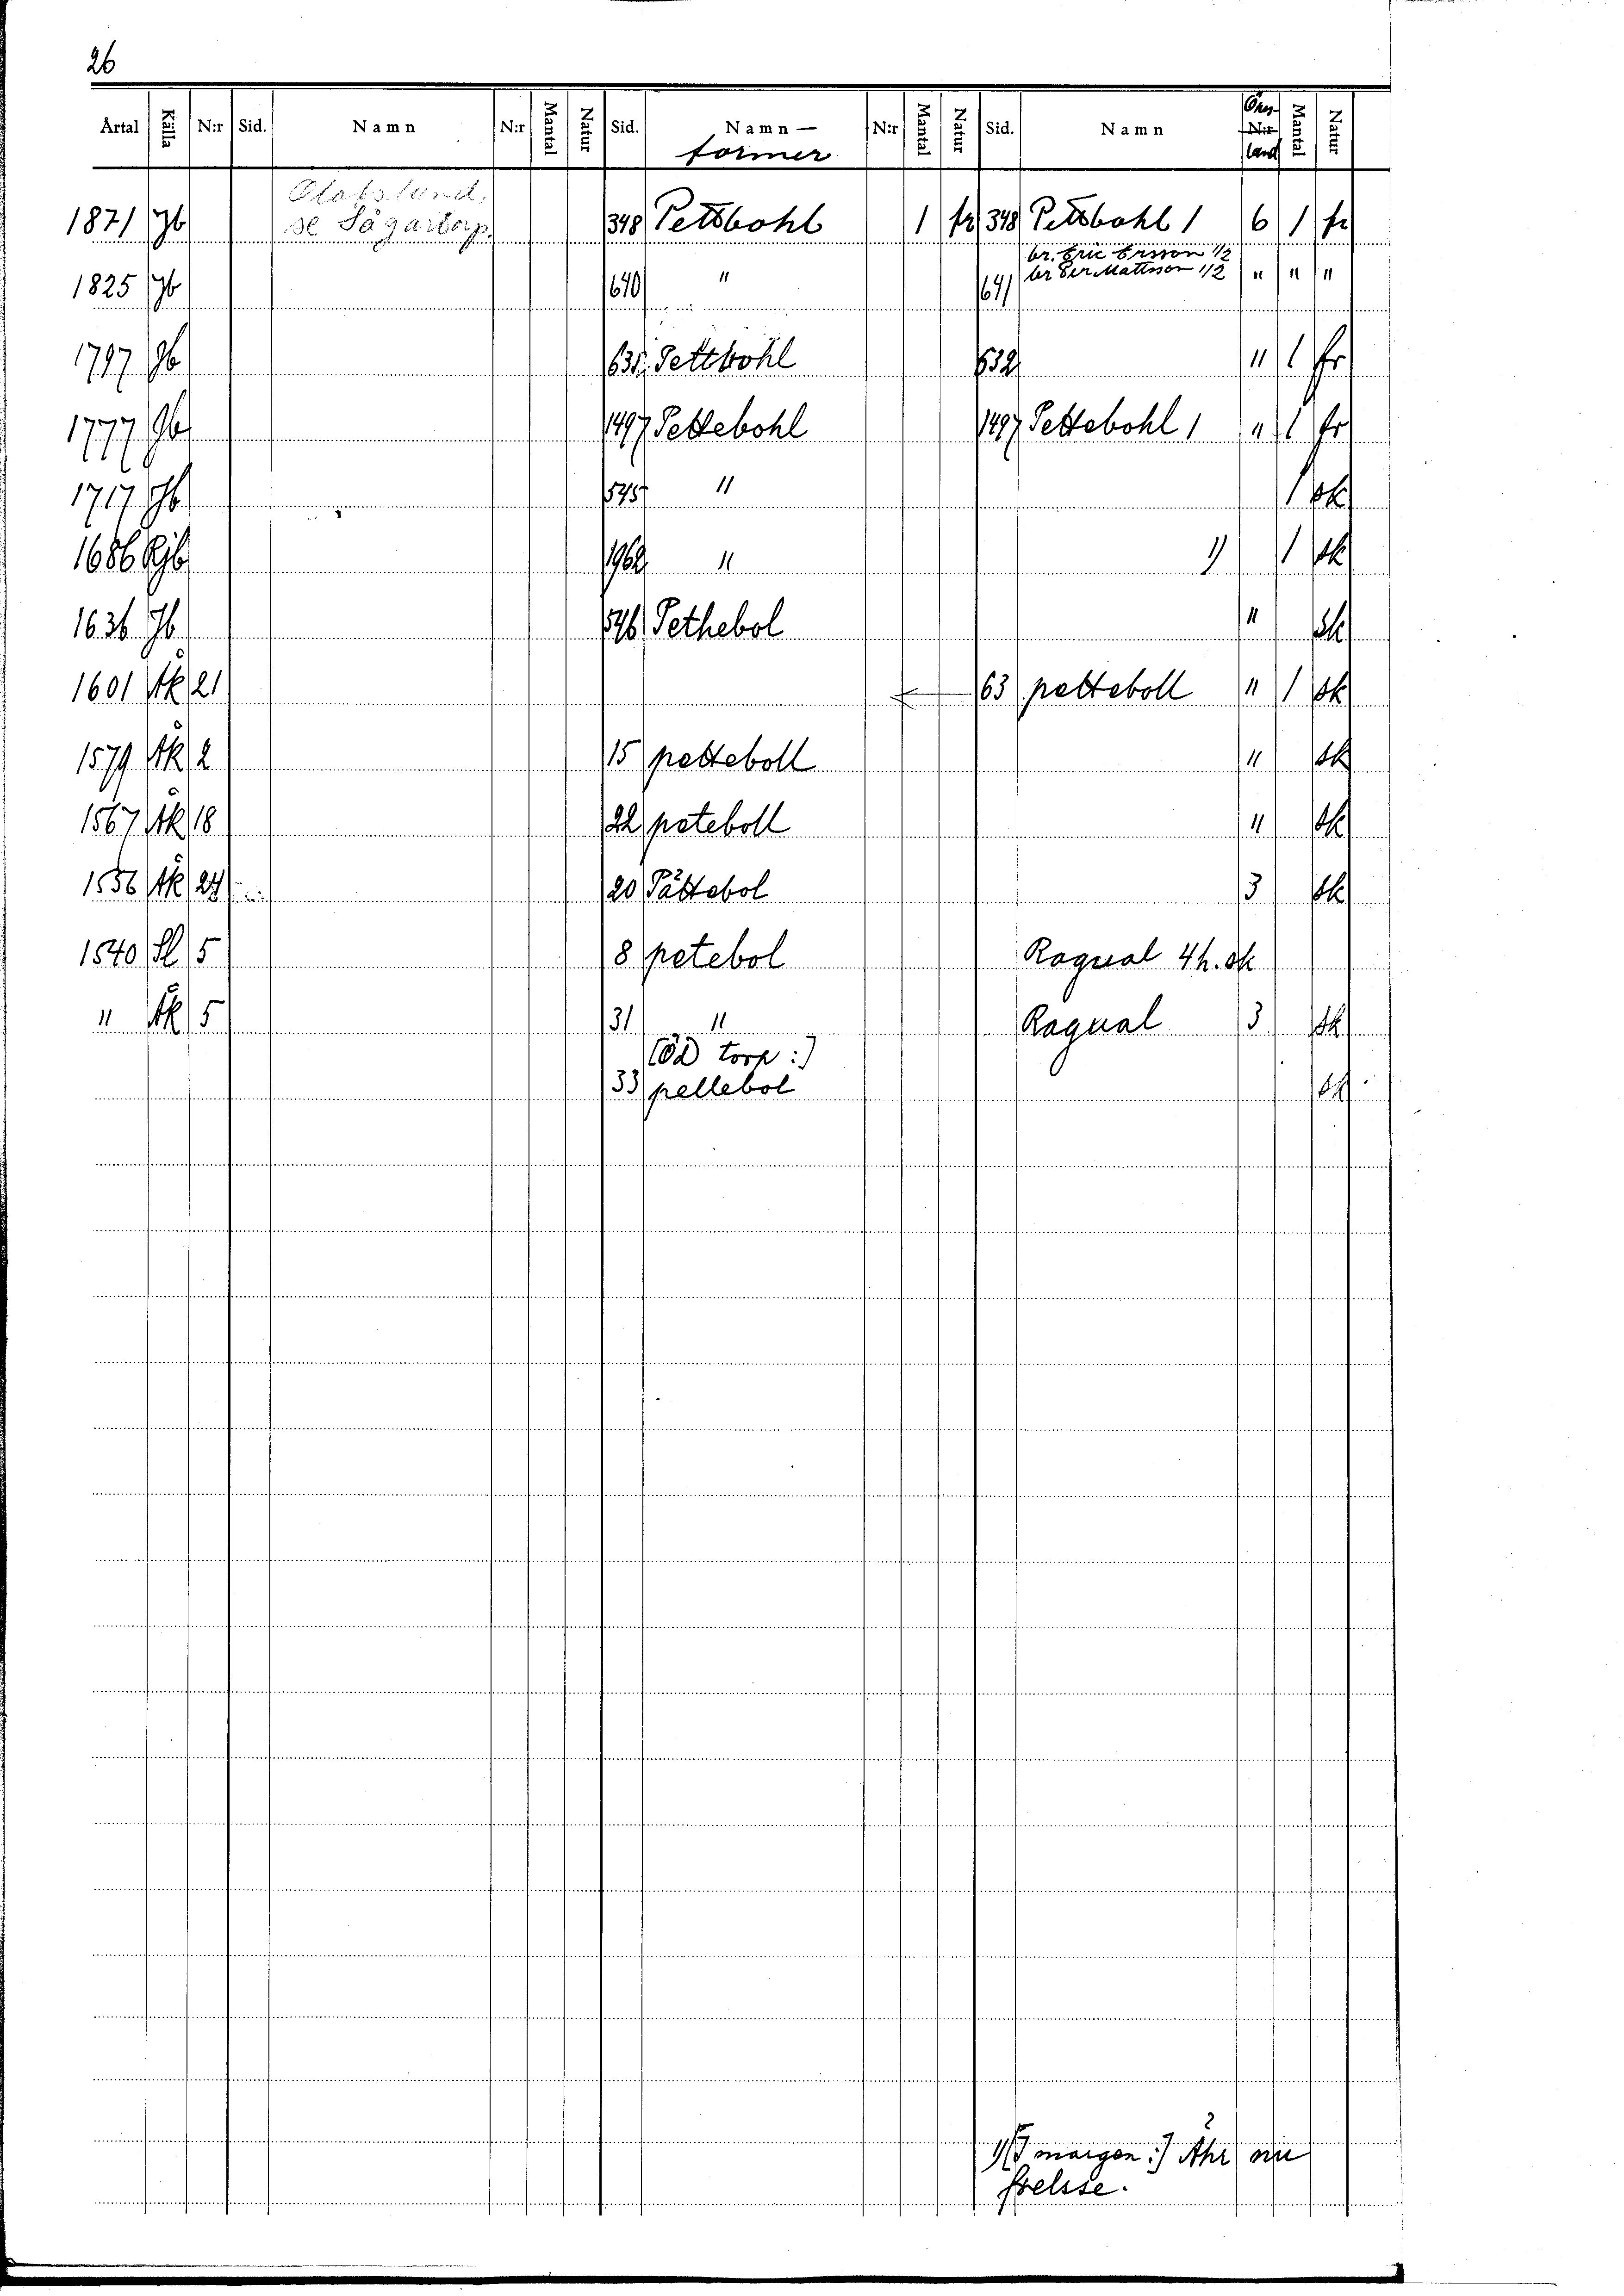 26
Årtal Källa N:r Sid. Namn N:r Mantal Natur Sid. Namn — former N:r Mantal Natur Sid. Namn Öres- N:r land Mantal Natur
Olafslund,
1871 Jb se Sågartorp. 348 Pettsbohl 1 fr 348 Pettsbohl 1 6 1 fr
br. Eric Ersson 1/2
1825 Jb 640 " 641 br Per Mattsson 1/2 " " "
1797 Jb 631 Pettbohl 632 " 1 fr
1777 Jb 1497 Pettebohl 1497 Pettebohl 1 " 1 fr
1717 Jb 545 " 1 sk
1686 Rjb 1962 " 1) 1 sk
1636 Jb 546 Pethebol " sk
1601 Åk 21 63 petteboll " 1 sk
1579 Åk 2 15 petteboll " sk
1567 Åk 18 22 peteboll " sk
1556 Åk 24 20 Påttebol 3 sk
1540 Sl 5 8 petebol Ragual 4 h. sk
" Åk 5 31 " Ragual 3 sk
[ÖD torp :]
33 pellebol sk
1) [I margen :] Åhr nu
frelsse.